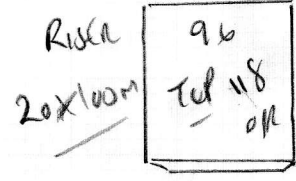 RISER
20X100M
96
TUP 118
OR